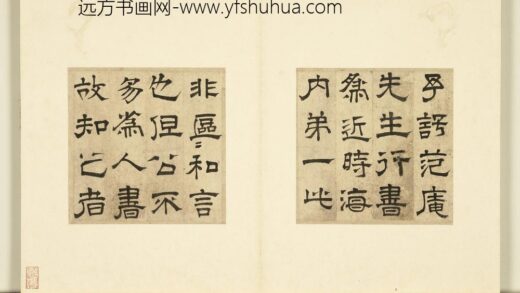 远方书画网-www.yfshuhua.com
予謂范庵
先生行書
為近時海
内弟一此
非區〻私言
也但公不
多為人書
故知之者